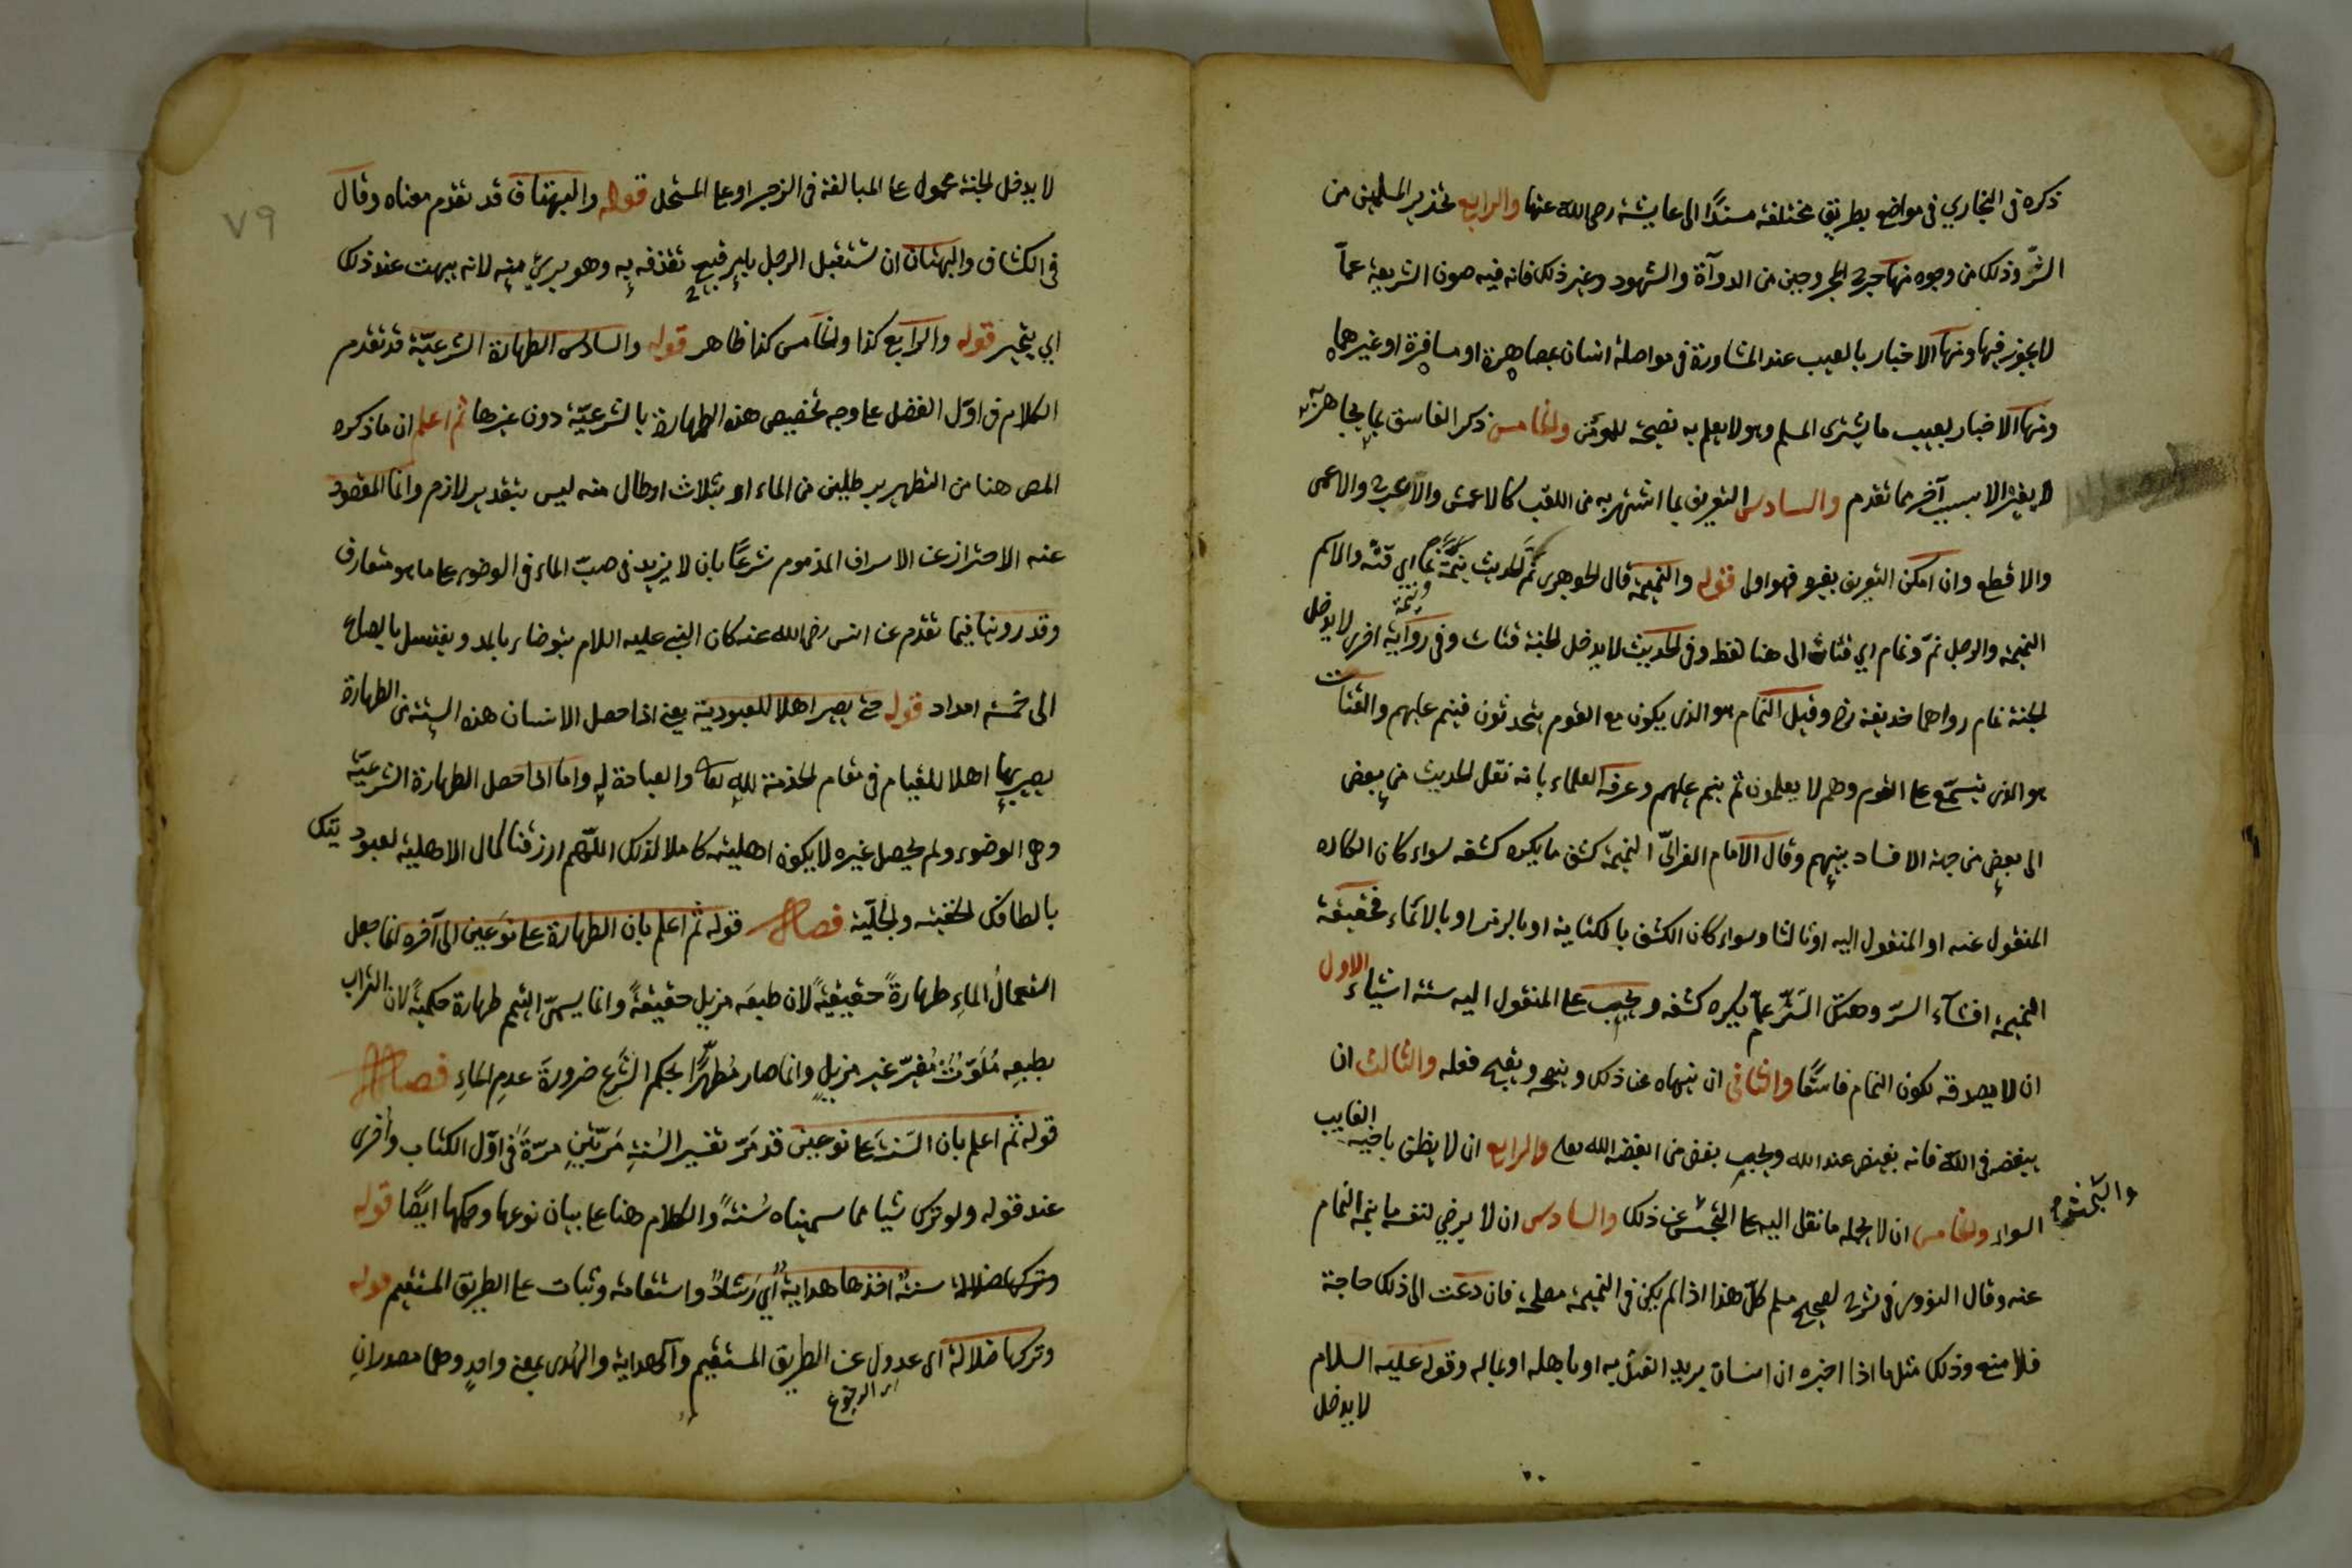 ذكره في البخاري في مواضع بطريق مختلفة مسندًا الى عايشة رضى الله عنها والرابع تحذير المسلمين من
الشّر وذلك من وجوه منها جرح المجروحين من الرواة والشهود وغير ذلك فانه فيه صون الشريعة عمّا
لا يجوز فيها ومنها الاخبار بالعيب عند المشاورة في مواصلة انسان بمصاهرة او مسافرة او غيرهما
ومنها الاخبار بعيب ما يشترى المسلم وهو لا يعلم به نصيحة للمؤمن والخامس ذكر الفاسق بما يجاهر به
لا بغيره الا بسبب آخر مما تقدم والسادس التعريف بما اشتهر به من اللقب كالاعمش والاعرج والاعمى
والاقطع وان امكن التعريف بغيره فهو اولى قوله والنميمة قال الجوهرى نمّ الحديث ينمّه وينمّه نمًّا اي قتّه والاسم
النميمة والرجل نمّ ونمام اي قتات الى هنا لفظه وفي الحديث لا يدخل الجنة قتات وفي رواية اخرى لا يدخل
الجنة نمام رواهما حذيفة رضه وقيل النمام هو الذى يكون مع القوم يتحدثون فينم عليهم والقتات
هو الذى يتسمّع على القوم وهم لا يعلمون ثم ينم عليهم وعرفه العلماء بانه نقل الحديث من بعض
الى بعض من جهة الافساد بينهم وقال الامام الغزاليّ النميمة كشف ما يكره كشفه سواء كان الكاره
المنقول عنه او المنقول اليه او ثالثا وسواء كان الكشف بالكناية او بالرمز او بالايماء فحقيقة
النميمة افشاء السرّ وهتك السّتر عمّا يكره كشفه ويجب على المنقول اليه ستة اشياء الاول
ان لا يصدقه لكون النمام فاسقًا والثاني ان ينهاه عن ذلك وينصحه ويقبح فعله والثالث ان
يبغضه في الله فانه بغيض عند الله ويجب بغض من ابغضه الله تعالى والرابع ان لا يظن باخيه الغايب
السوء والخامس ان لا يحمله ما نقل اليه على التجسّس عن ذلك والسادس ان لا يرضي لنفسه ما ينهى النمام
عنه وقال النووى في شرح لصحيح مسلم كلّ هذا اذا لم يكن في النميمة مصلحة فان دعت الى ذلك حاجة
فلا منع وذلك مثل ما اذا اخبره ان انسان يريد الفتك به او باهله او بماله وقوله عليه السلام
لا يدخل
٧٩
لا يدخل الجنة محمول على المبالغة في الزجر او على المستحل قوله والبهتان قد تقدم معناه وقال
في الكشاف والبهتان ان تستقبل الرجل بامر قبيح تقذفه به وهو بريء منه لانه يبهت عند ذلك
اي يتحير قوله والرابع كذا والخامس كذا ظاهر قوله والسادس الطهارة الشرعيّة قد تقدم
الكلام في اوّل الفصل على وجه تخصيص هذه الطهارة بالشرعيّة دون غيرها ثم اعلم ان ما ذكره
المص هنا من التطهير برطلين من الماء او بثلاث ارطال منه ليس بتقدير لازم وانما المقصود
عنه الاحتراز عن الاسراف المذموم شرعًا بان لا يزيد في صبّ الماء في الوضوء على ما هو متعارف
وقد روينا فيما تقدم عن انس رضى الله عنه كان النبي عليه السلام يتوضاء بالمد ويغتسل بالصاع
الى خمسة امداد قوله حتى يصير اهلا للعبودية يعنى اذا حصل الانسان هذه الستة من الطهارة
يصير بها اهلا للقيام في مقام الخدمة لله تعالى والعبادة له واما اذا حصل الطهارة الشرعيّة
وهى الوضوء ولم يحصل غيره لا يكون اهليته كاملا لذلك اللّهم ارزقنا كمال الاهلية لعبوديتك
بالطافك الخفية والجليّة فصل قوله ثم اعلم بان الطهارة على نوعين الى آخره انما جعل
استعمالُ الماءِ طهارةً حقيقيةً لان طبعَه مزيل حقيقةً وانما يسمّى التيمم طهارة حكميةً لان التراب
بطبعِه مُلَوّثٌ مُغبّر غير مزيلٍ وانما صار مُطهِّرًا بحكم الشّرع ضرورةَ عدمِ الماءِ فصل
قوله ثم اعلم بان السّنة على نوعين قد مرّ تفسير السُنة مَرّتين مرّةً في اوّل الكتاب وأخرى
عند قوله ولو ترك شيا مما سميناه سُنةً والكلام هنا على بيان نوعها وحكمها ايضًا قوله
وتركها ضلالة سنةٌ اخذها هداية اي رَشادٌ واستقامة وثبات على الطريق المستقيم قوله
وتركها ضلالة اى عدول عن الطريق المستقيم والهداية والهُدى بمعنى واحدٍ وهما مصدرانِ